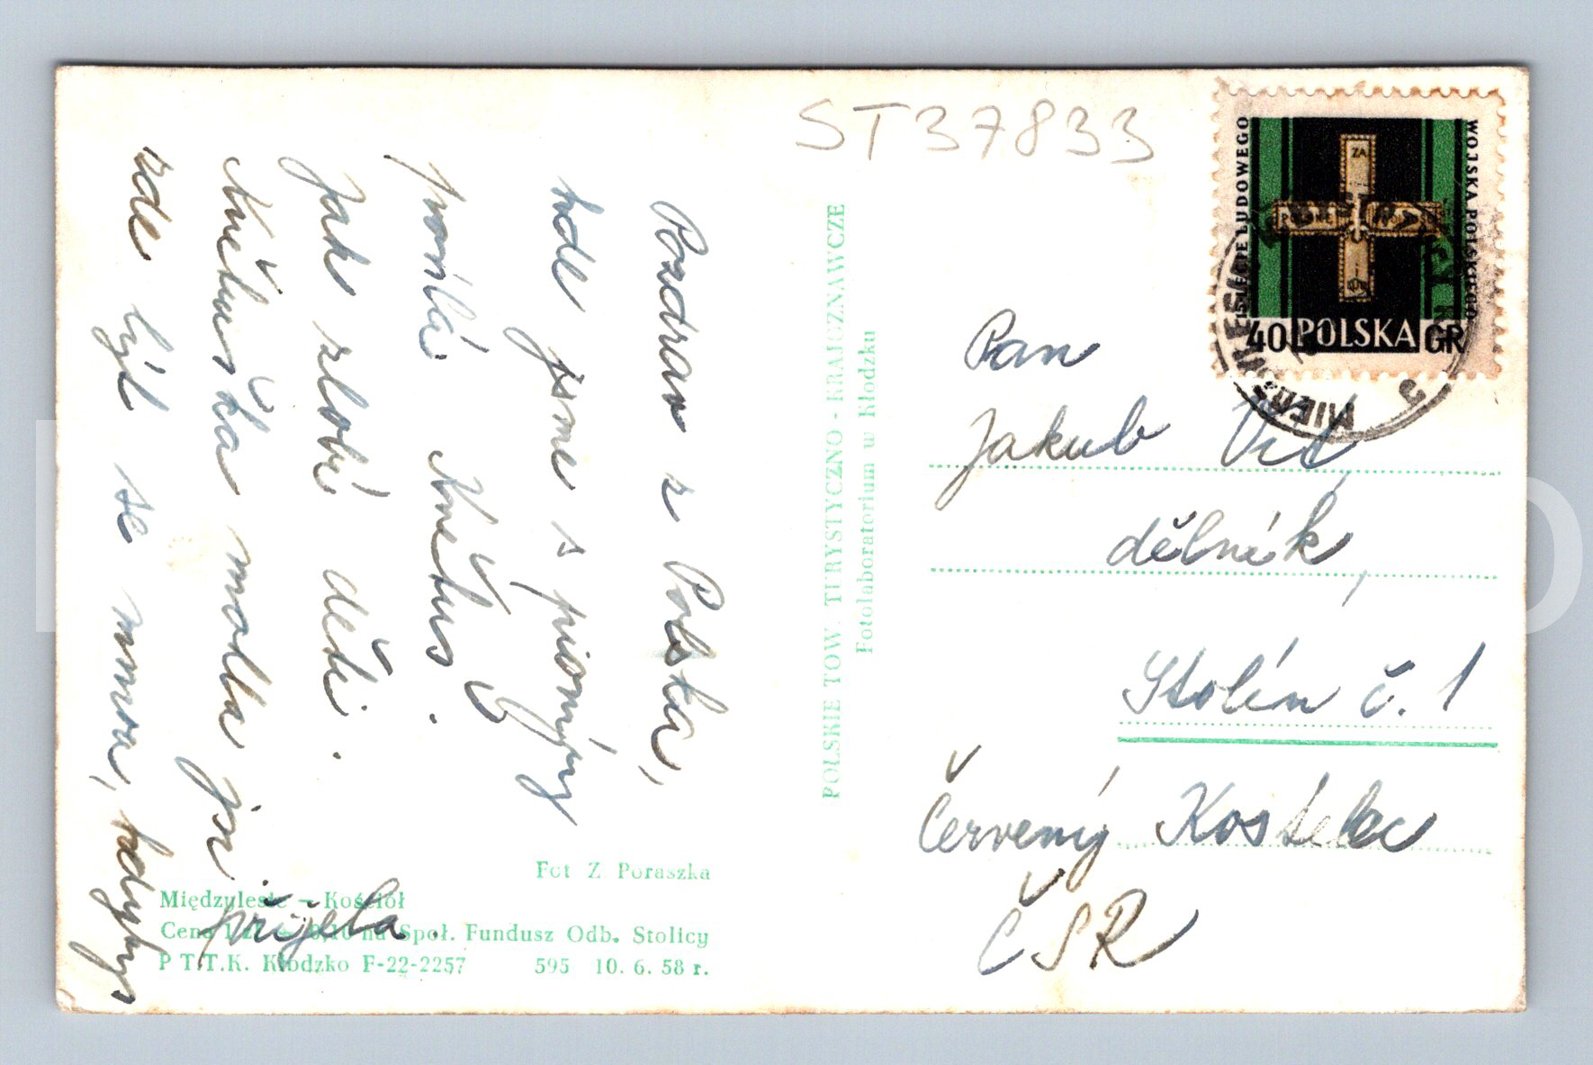 ST37833
Pozdrav z Polska,
kde jsme s pionýry
posílá Knětus.
Jak zlobí děti.
Knětuska mohla jsi
přijela.
zde líbí se mnoa, kdyby
Pan
Jakub Vít
dělník,
Stolín č. 1
Červený Kostelec
ČSR
POLSKIE TOW. TURYSTYCZNO - KRAJOZNAWCZE
Fotolaboratorium w Kłodzku
Fot Z Poraszka
Międzylesie - Kościół
Cena 1 zł + 0,10 na Społ. Fundusz Odb. Stolicy
P T.T.K. Kłodzko F-22-2257 595 10. 6. 58 r.
WOJSKA POLSKIEGO
LUDOWEGO
ZA
40 POLSKA GR